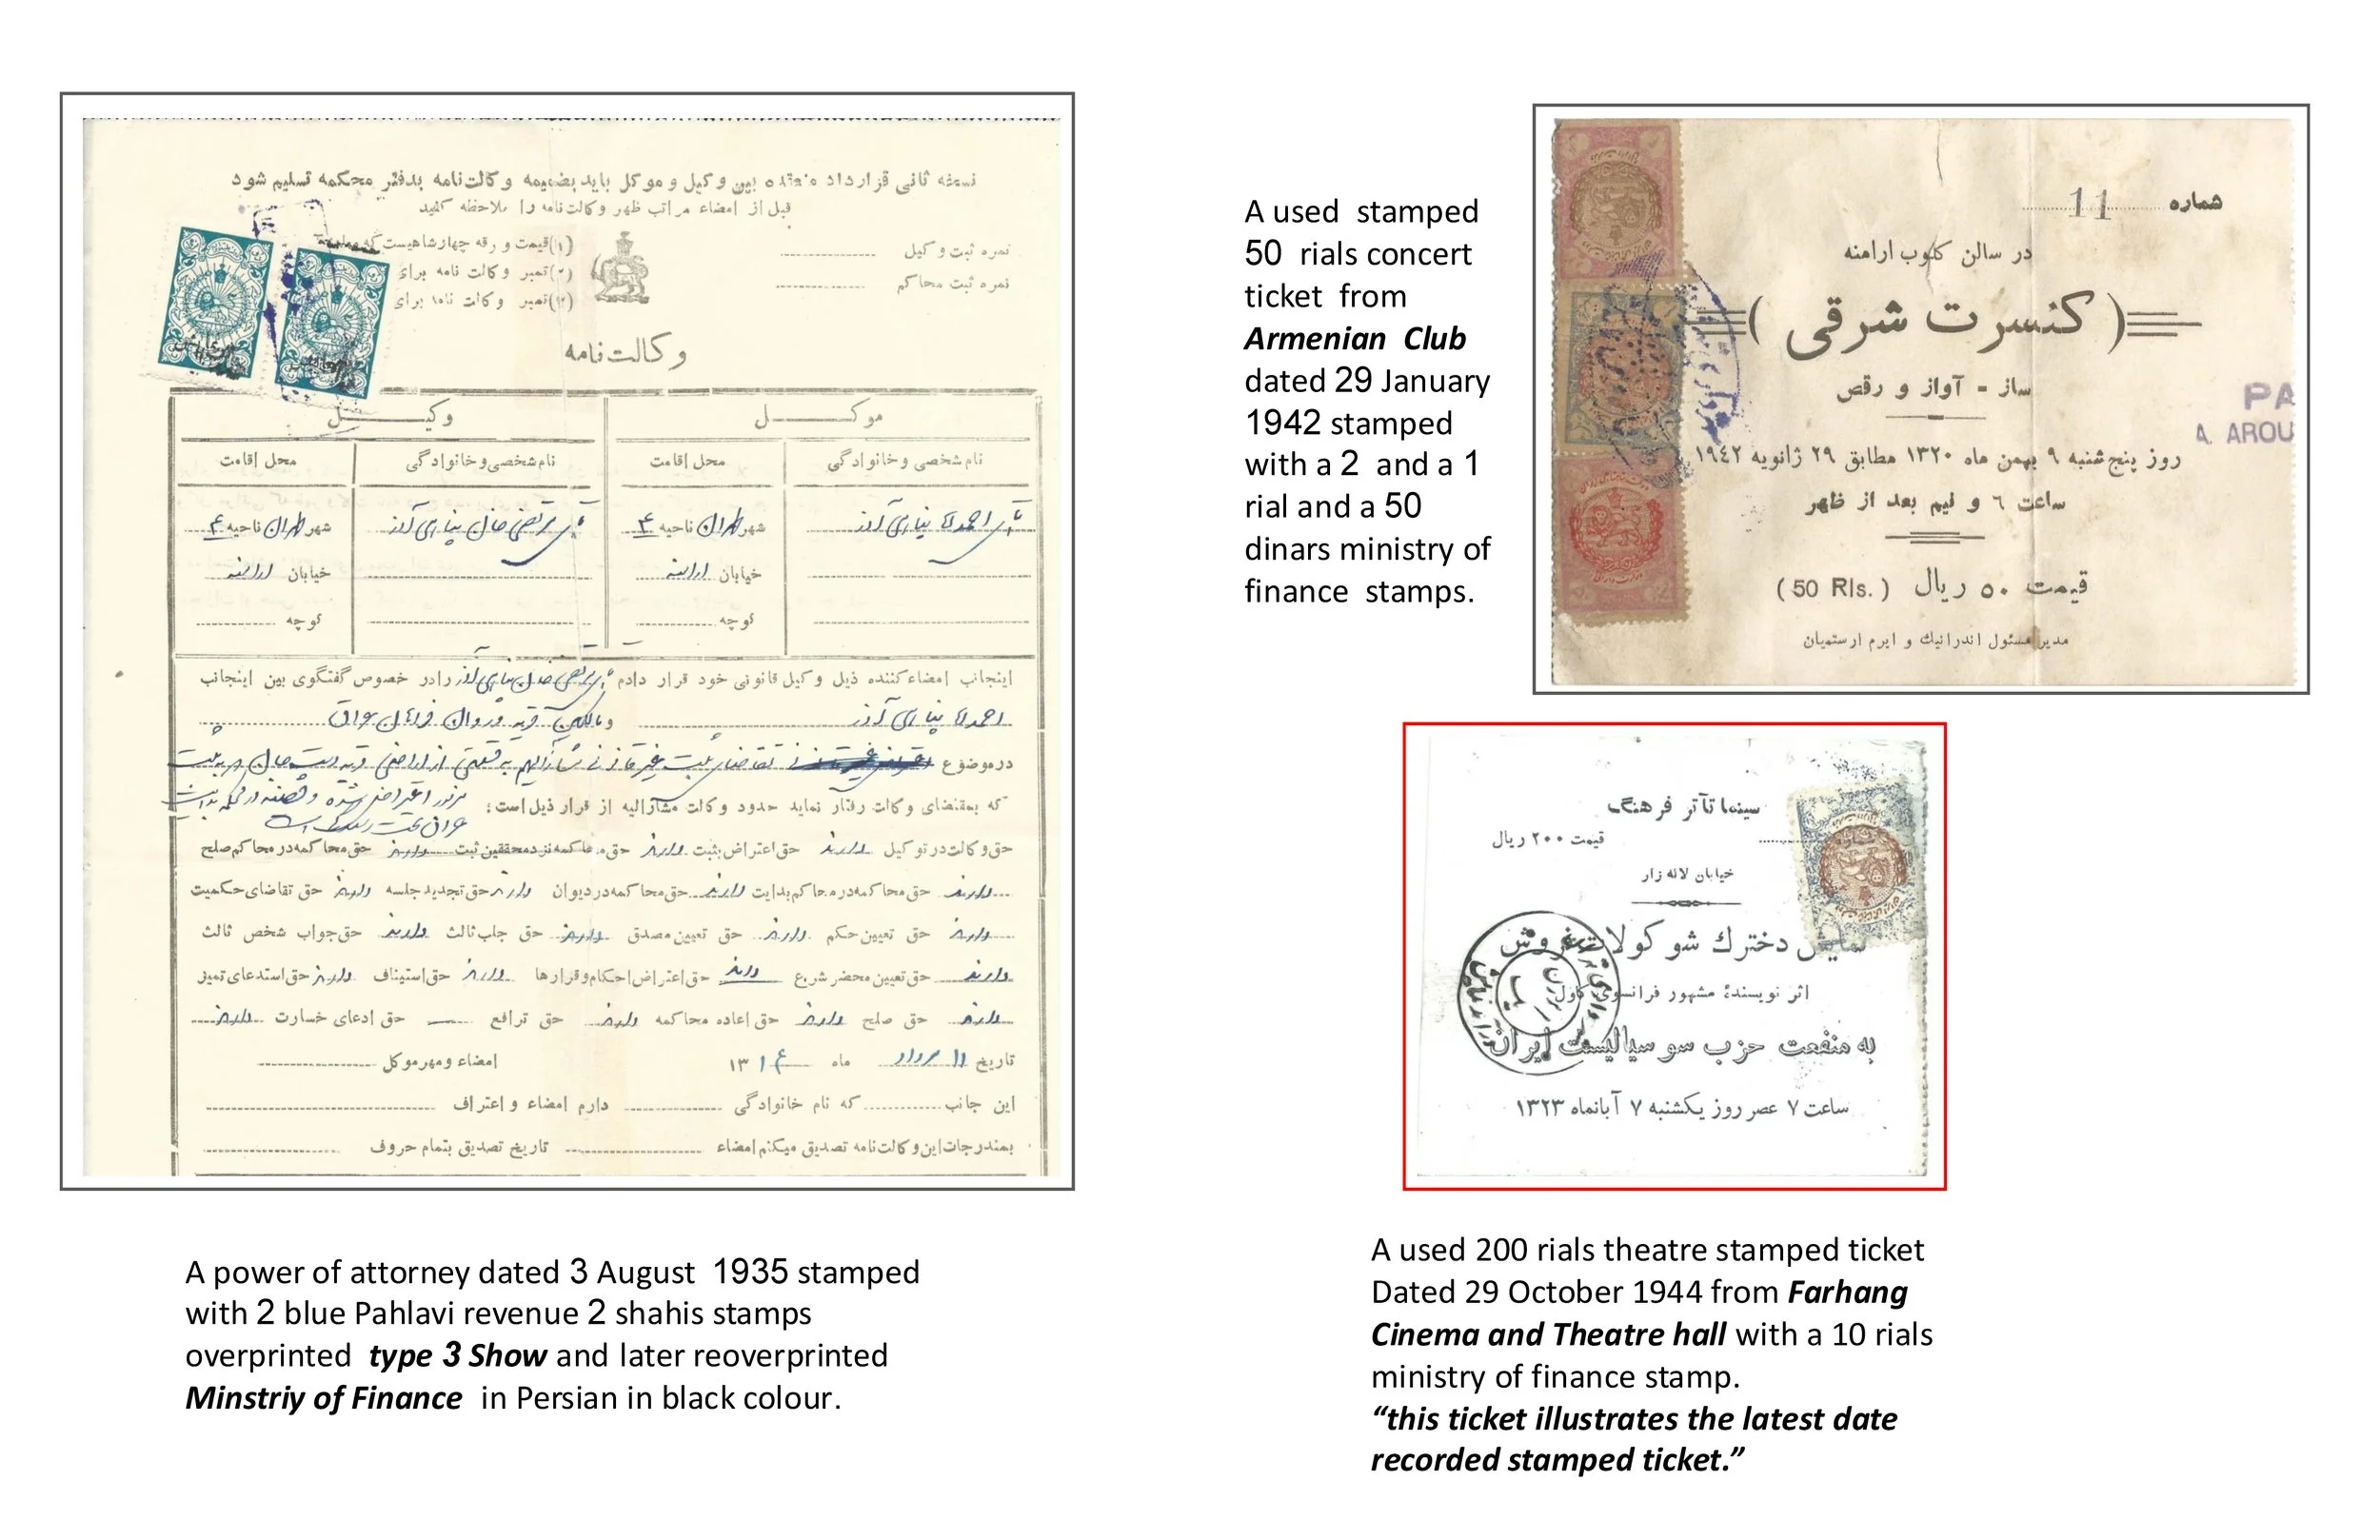 نسخه ثانی قرارداد منعقده بین وکیل و موکل باید بضمیمه وکالت‌نامه بدفتر محکمه تسلیم شود
قبل از امضاء مراتب ظهر وکالت‌نامه را ملاحظه کنید
نمره ثبت وکیل
نمره ثبت محاکم
(۱) قیمت ورقه چهارشاهیست که
(۲) تمبر وکالت نامه برای
تمبر وکالت نامه برای
وکالت‌نامه
موکل
وکیل
نام شخصی و خانوادگی
محل اقامت
نام شخصی و خانوادگی
محل اقامت
شهر طهران ناحیه ۴
شهر طهران ناحیه ۴
خیابان ارامنه
خیابان ارامنه
کوچه
کوچه
اینجانب امضاءکننده ذیل وکیل قانونی خود قرار دادم رادر خصوص گفتگوی بین اینجانب
درموضوع
که بمقتضای وکالت رفتار نماید حدود وکالت مشارالیه از قرار ذیل است:
حق وکالت در توکیل دارند حق اعتراض بثبت دارند حق محاکمه نزد محققین ثبت دارند حق محاکمه در محاکم صلح
دارند حق محاکمه در محاکم بدایت دارند حق محاکمه در دیوان دارند حق تجدید جلسه دارند حق تقاضای حکمیت
دارند حق تعیین حکم دارند حق تعیین مصدق دارند حق جلب ثالث دارند حق جواب شخص ثالث
دارند حق تعیین محضر شرع دارند حق اعتراض احکام و قرارها دارند حق استیناف دارند حق استدعای تمیز
دارند حق صلح دارند حق اعاده محاکمه دارند حق ترافع حق ادعای خسارت دارند
تاریخ ۱۱ مرداد ماه ۱۳۱۴ امضاء و مهر موکل
این جانب که نام خانوادگی دارم امضاء و اعتراف
بمندرجات این وکالت‌نامه تصدیق میکنم امضاء تاریخ تصدیق بتمام حروف
A power of attorney dated 3 August 1935 stamped
with 2 blue Pahlavi revenue 2 shahis stamps
overprinted type 3 Show and later reoverprinted
Minstriy of Finance in Persian in black colour.
A used stamped
50 rials concert
ticket from
Armenian Club
dated 29 January
1942 stamped
with a 2 and a 1
rial and a 50
dinars ministry of
finance stamps.
شماره 11
در سالن کلوب ارامنه
( کنسرت شرقی )
ساز - آواز و رقص
PA
A. AROU
روز پنج شنبه ۹ بهمن ماه ۱۳۲۰ مطابق ۲۹ ژانویه ۱۹٤۲
ساعت ٦ و نیم بعد از ظهر
قیمت ۵۰ ریال (50 Rls.)
مدیر مسئول اندرانیك و ایرم ارستمیان
سینما تآتر فرهنگ
قیمت ۲۰۰ ریال
خیابان لاله زار
نمایش دخترك شوکولات فروش
اثر نویسندهٔ مشهور فرانسوی کاول
به منفعت حزب سوسیالیست ایران
ساعت ۷ عصر روز یکشنبه ۷ آبانماه ۱۳۲۳
A used 200 rials theatre stamped ticket
Dated 29 October 1944 from Farhang
Cinema and Theatre hall with a 10 rials
ministry of finance stamp.
“this ticket illustrates the latest date
recorded stamped ticket.”